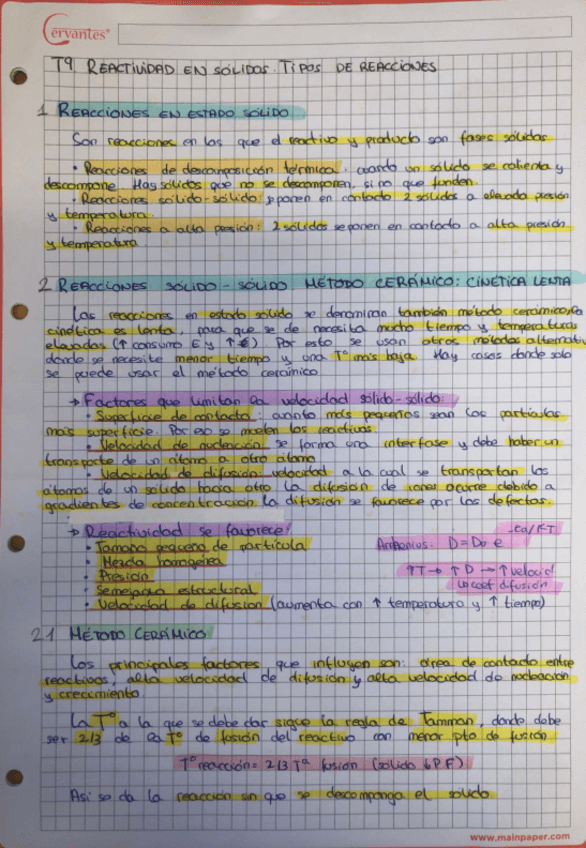 Cervantes®
T9 REACTIVIDAD EN SÓLIDOS. TIPOS DE REACCIONES
1 REACCIONES EN ESTADO SÓLIDO
Son reacciones en las que el reactivo y producto son fases sólidas
· Reacciones de descomposición térmica: cuando un sólido se calienta y
descompone. Hay sólidos que no se descomponen, sino que funden.
· Reacciones sólido-sólido: ponen en contacto 2 sólidos a elevada presión
y temperatura.
· Reacciones a alta presión: 2 sólidos se ponen en contacto a alta presión
y temperatura
2 REACCIONES SÓLIDO-SÓLIDO MÉTODO CERÁMICO: CINÉTICA LENTA
Las reacciones en estado sólido se denominan también método cerámico. La
cinética es lenta, para que se de necesita mucho tiempo y temperaturas
elevadas (↑ consumo E y ↑ €). Por esto se usan otros métodos alternati
donde se necesite menor tiempo y una Tº más baja. Hay casos donde solo
se puede usar el método cerámico
→ Factores que limitan la velocidad sólido-sólido:
· Superficie de contacto: cuanto más pequeñas sean las partículas
más superficie. Por eso se muelen los reactivos
· Velocidad de nucleación: se forma una interfase y debe haber un
transporte de un átomo a otro átomo
· Velocidad de difusión: velocidad a la cual se transportan los
átomos de un sólido hacia otro. La difusión de iones ocurre debido a
gradientes de concentración. La difusión se favorece por los defectos.
→ Reactividad se favorece:
· Tamaño pequeño de partícula
· Mezcla homogénea
· Presión
· Semejanza estructural
· Velocidad de difusión (aumenta con ↑ temperatura y ↑ tiempo)
Arrhenius: D = D₀ e^-Ea/RT
↑T → ↑D → ↑ velocid
↳ coef difusión
2.1 MÉTODO CERÁMICO
Los principales factores que influyen son: área de contacto entre
reactivos, alta velocidad de difusión y alta velocidad de nucleación
y crecimiento.
La Tº a la que se debe dar sigue la regla de Tamman, donde debe
ser 2/3 de la Tº de fusión del reactivo con menor pto de fusión
Tº reacción = 2/3 Tº fusión (sólido ↓PF)
Así se da la reacción sin que se descomponga el sólido
www.mainpaper.com